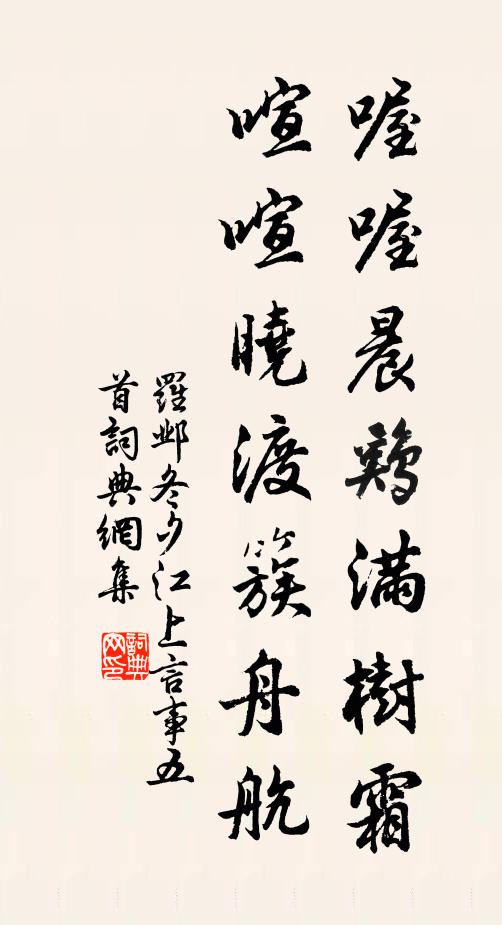 喔喔晨鷄滿樹霜
喧喧曉渡簇舟航
羅鄴冬夕江上言事五
首詞典網集
詞典网印